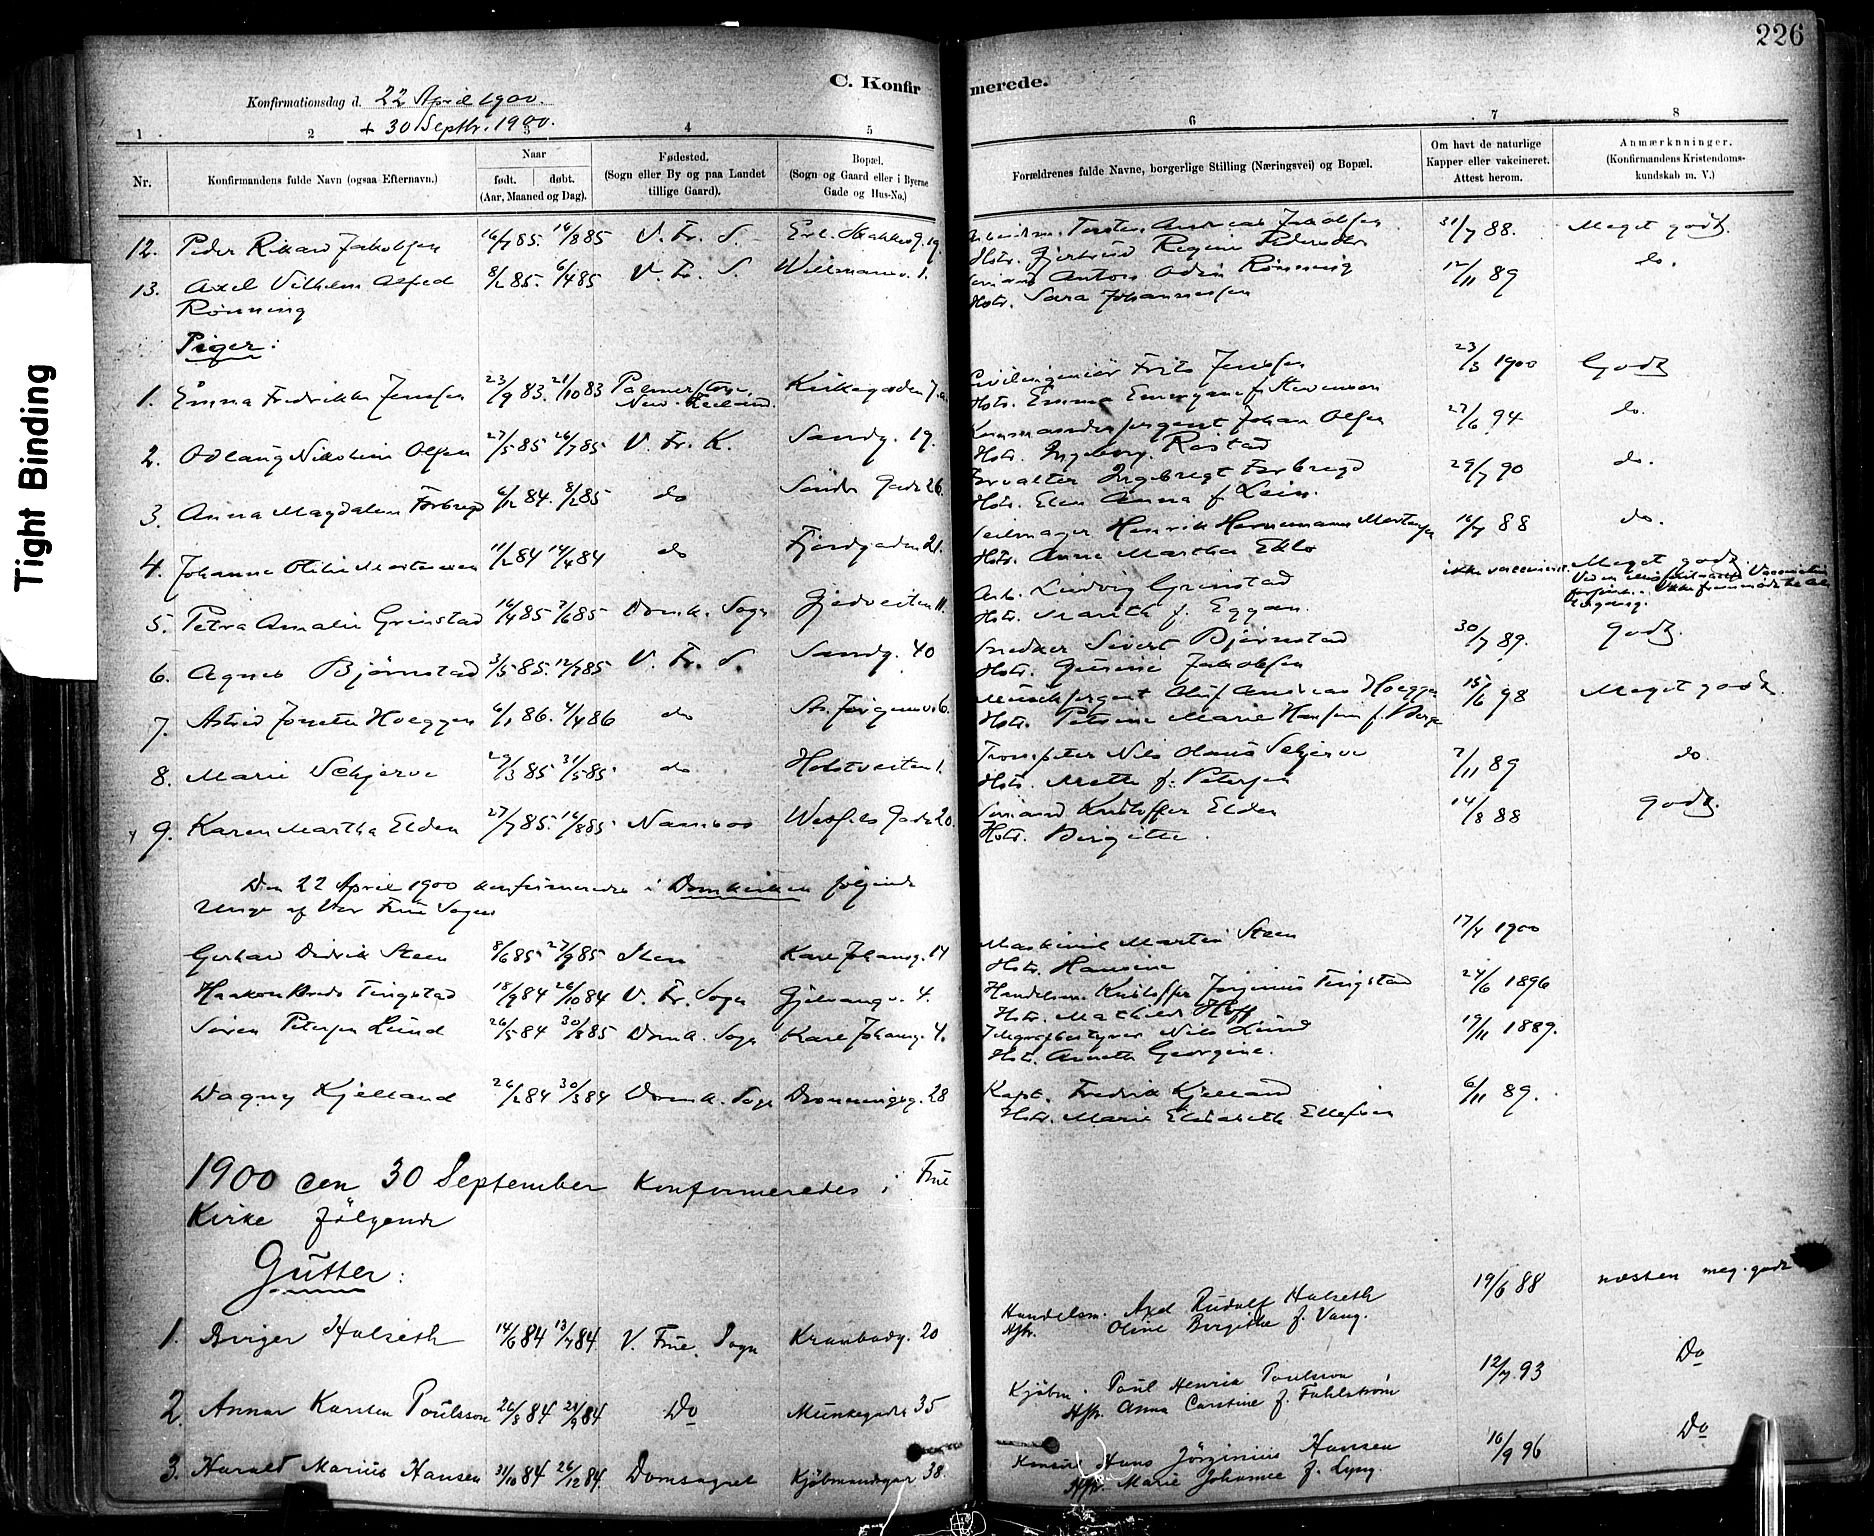 226
C. Konfirmerede.
Konfirmationsdag d. 22 April 1900.
+ 30 Septbr. 1900.
1 2 3 4 5 6 7 8
Nr.
Konfirmandens fulde Navn (ogsaa Efternavn).
Naar
født. døbt.
(Aar, Maaned og Dag).
Fødested.
(Sogn eller By og paa Landet
tillige Gaard).
Bopæl.
(Sogn og Gaard eller i Byerne
Gade og Hus-No.)
Forældrenes fulde Navne, borgerlige Stilling (Næringsvei) og Bopæl.
Om havt de naturlige
Kopper eller vakcineret.
Attest herom.
Anmærkninger.
(Konfirmandens Kristendoms-
kundskab m. V.)
Tight Binding
12. Peder Rikard Jakobsen 16/7 85. 16/8 85 V. Fr. S. 19. Torsten Andreas Jakobsen 31/7 88. Meget godt.
Hstr. Gjertrud Regine Pedersdtr
13. Axel Vilhelm Alfred 8/2 85. 6/4 85 V. Fr. S. 1. Anton Odin Rønning 12/11 89 do.
Rønning Hstr. Sara Johannessen
Piger:
1. Emma Fredrikke Jenssen 23/9 83. 21/10 83 Palmerston New Zeeland. Kirkegaden 7.a Civilingeniør Frits Jenssen 23/3 1900 Godt
Hstr. Emma f. Stevenson
2. Odlaug Nikoline Olsen 27/5 85 26/7 85 V. Fr. K. Sandg. 19. Johan Olsen 27/6 94 do.
Hstr. Ingeborg Rostad
3. Anna Magdalene Forbregd 6/12 84. 8/2 85 do Søndre Gade 26. Forvalter Ingebrigt Forbregd 29/7 90 do.
Hstr. Elen Anna f. Lein.
4. Johanna Otilie Mortensen 11/2 84 14/4 84 do Fjordgaden 21. Seilmager Henrik Hornemann Mortensen 16/7 88 do.
Hstr. Anne Martha Eklo
5. Petra Amalie Grinstad 16/4 85 7/6 85 Domk. Sogn Gjedveiten 11. Arb. Ludvig Grinstad ikke vaccineret. Meget godt.
Hstr. Marith f. Eggan.
6. Agnes Bjørnstad 3/5 85 12/7 85 V. Fr. S. Sandg. 40 Snedker Sivert Bjørnstad 30/7 89. godt.
Hstr. Gurine Jakobsen
7. Astrid Josette Hoeggen 6/1 86. 4/4 86 do St. Jørgensv. 6. Oluf Andreas Hoeggen 15/6 98 Meget godt.
Hstr. Petrine Marie Hansen f. Berge
8. Marie Schjerve 29/3 85 31/5 85 do Holstveiten 1. Trompeter Nils Olaus Schjerve 7/11 89 do.
Hstr. Mette f. Petersen
9. Karen Martha Elden 27/7 85. 16/8 85 Namsos 20. Kristoffer Elden 14/8 88 godt.
Hstr. Birgitte.
Den 22 April 1900 konfirmeredes i Domkirken følgende
Unge af Vor Frue Sogn
Gerhard Didrik Steen 8/6 85 27/9 85 Skien Karl Johansg. 14 Maskinist Martin Steen 17/4 1900
Hstr. Hansine
Haakon Tingstad 18/9 84 26/10 84 V. Fr. Sogn Gjelvangv. 4. Handelsm. Kristoffer Jørginius Tingstad 24/6 1896
Hstr. Mathilde Hoff
Søren Petersen Lund 26/5 84 30/8 85 Domk. Sogn Karl Johansg. 4. Telegrafbestyrer Nils Lund 19/11 1889.
Hstr. Anneth Georgine.
Dagny Kjelland 26/2 84 30/3 84 Domk. Sogn Dronningsg. 28 Kapt. Fredrik Kjelland 6/11 89.
Hstr. Marie Elisabeth Ellefsen
1900 den 30 September konfirmeredes i Frue
Kirke følgende
Gutter:
1. Birger Halseth 14/6 84 13/7 84. V. Frue Sogn Krambodg. 20 Handelsm. Axel Rudolf Halseth 19/6 88 næsten meg. godt
Hstr. Oline Birgitte f. Vang.
2. Annar Karsten Poulsson 26/8 84 28/9 84 Do Munkegaden 35 Kjøbm. Poul Henrik Poulsson 12/7 93 Do
Hstr. Anna Carstine f. Fahlstrøm
3. Harald Marius Hansen 31/10 84 26/12 84. Domsognet Kjøbmandsgad 38. Konsul Hans Jörginius Hansen 10/9 96 Do
Hstr. Marie Johanne f. Lyng.